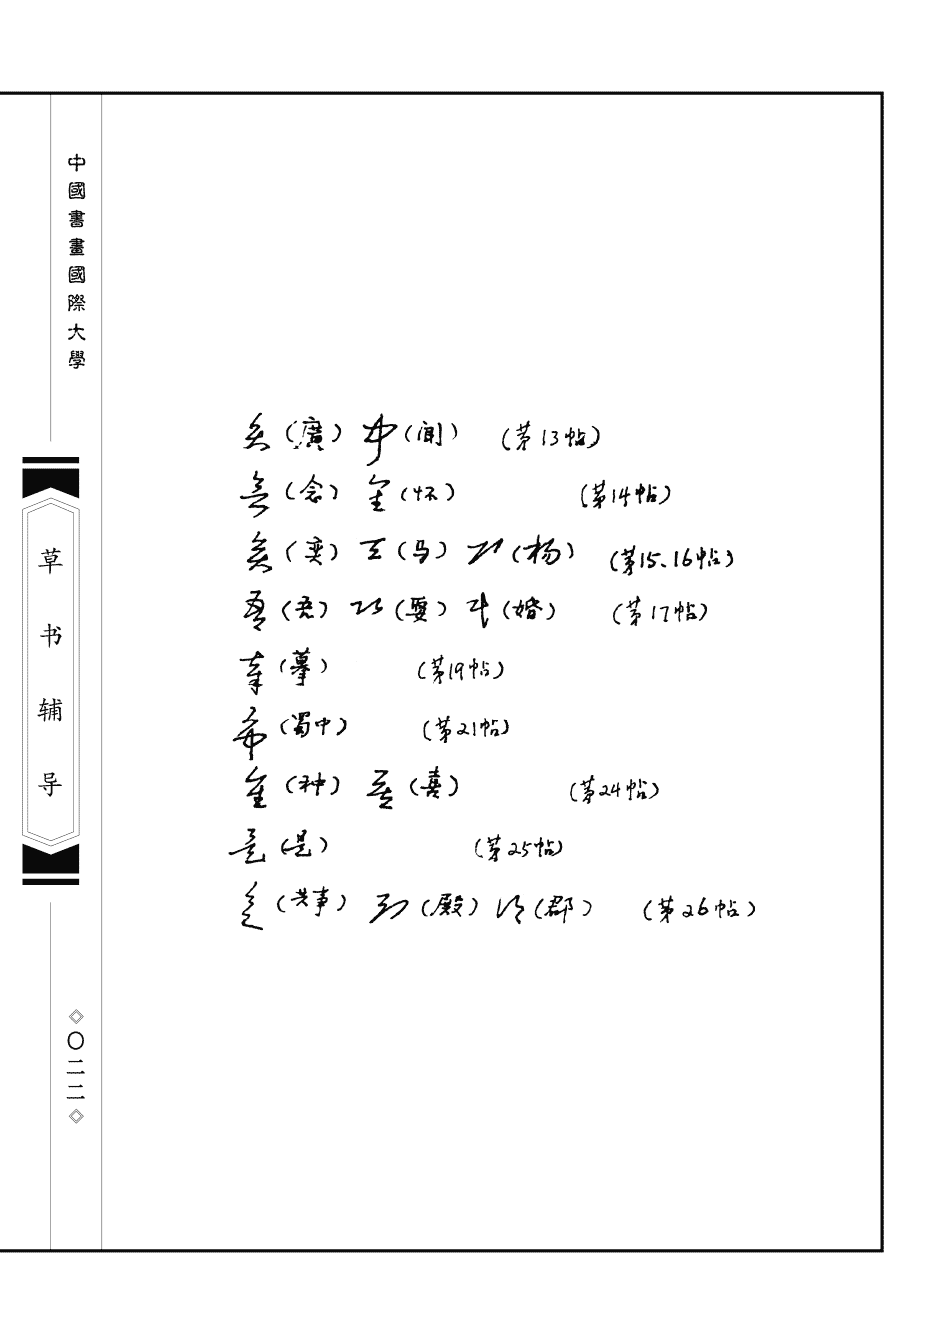 中國書畫國際大學
草书辅导
〇二二
(廣) (闻) (第13帖)
(念) (怀) (第14帖)
(奕) (马) (杨) (第15、16帖)
(君) (要) (婚) (第17帖)
(摹) (第19帖)
(蜀中) (第21帖)
(种) (喜) (第24帖)
(是) (第25帖)
(共事) (殿) (郡) (第26帖)